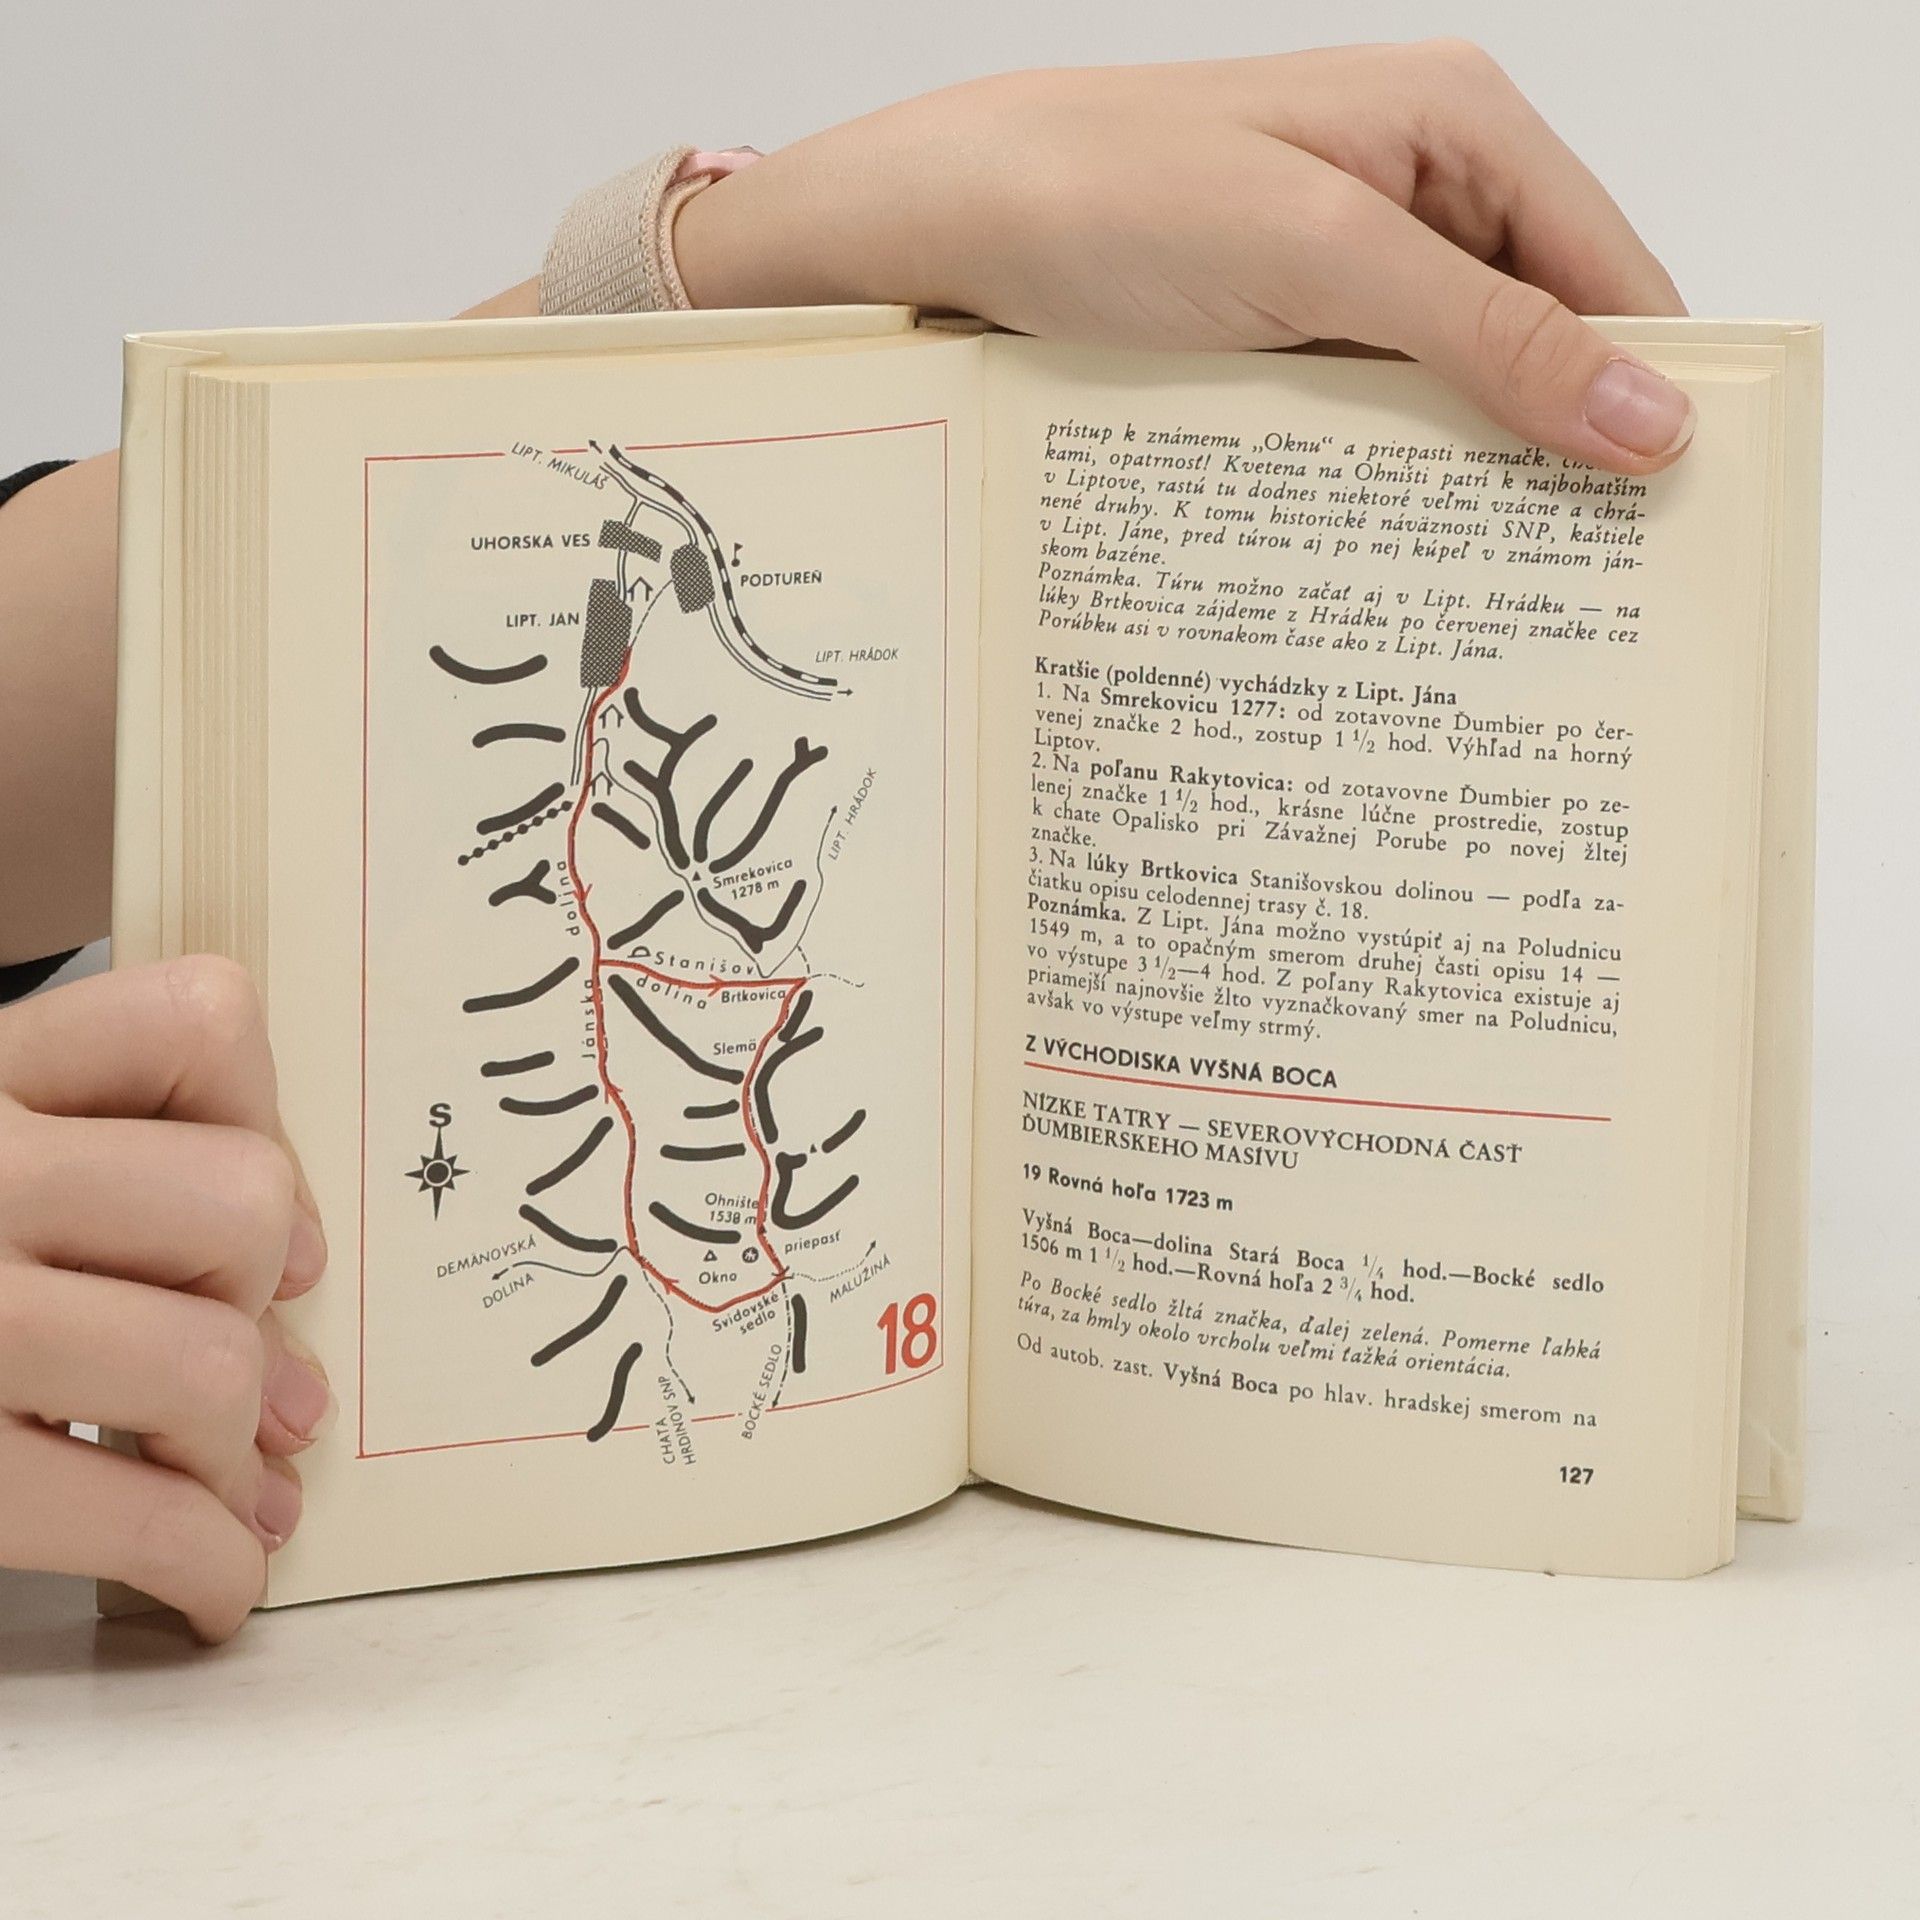 LIPT. MIKULÁŠ
UHORSKA VES
PODTUREŇ
LIPT. JÁN
LIPT. HRÁDOK
LIPT. HRÁDOK
Smrekovica
1278 m
Jánska dolina
Stanišov
dolina
Brtkovica
Slemä
S
Ohnište
1538 m
priepasť
DEMÄNOVSKÁ
DOLINA
Okno
MALUŽINÁ
Svidovské
sedlo
18
CHATA
HRDINOV SNP
BOCKÉ SEDLO
prístup k známemu „Oknu“ a priepasti neznačk.
kami, opatrnosť! Kvetena na Ohništi patrí k najbohatším
v Liptove, rastú tu dodnes niektoré veľmi vzácne a chrá-
nené druhy. K tomu historické náväznosti SNP, kaštiele
v Lipt. Jáne, pred túrou aj po nej kúpeľ v známom ján-
skom bazéne.
Poznámka. Túru možno začať aj v Lipt. Hrádku — na
lúky Brtkovica zájdeme z Hrádku po červenej značke cez
Porúbku asi v rovnakom čase ako z Lipt. Jána.
Kratšie (poldenné) vychádzky z Lipt. Jána
1. Na Smrekovicu 1277: od zotavovne Ďumbier po čer-
venej značke 2 hod., zostup 1 1/2 hod. Výhľad na horný
Liptov.
2. Na poľanu Rakytovica: od zotavovne Ďumbier po ze-
lenej značke 1 1/2 hod., krásne lúčne prostredie, zostup
k chate Opalisko pri Závažnej Porube po novej žltej
značke.
3. Na lúky Brtkovica Stanišovskou dolinou — podľa za-
čiatku opisu celodennej trasy č. 18.
Poznámka. Z Lipt. Jána možno vystúpiť aj na Poludnicu
1549 m, a to opačným smerom druhej časti opisu 14 —
vo výstupe 3 1/2—4 hod. Z poľany Rakytovica existuje aj
priamejší najnovšie žlto vyznačkovaný smer na Poludnicu,
avšak vo výstupe veľmy strmý.
Z VÝCHODISKA VYŠNÁ BOCA
NÍZKE TATRY — SEVEROVÝCHODNÁ ČASŤ
ĎUMBIERSKEHO MASÍVU
19 Rovná hoľa 1723 m
Vyšná Boca—dolina Stará Boca 1/4 hod.—Bocké sedlo
1506 m 1 1/2 hod.—Rovná hoľa 2 3/4 hod.
Po Bocké sedlo žltá značka, ďalej zelená. Pomerne ľahká
túra, za hmly okolo vrcholu veľmi ťažká orientácia.
Od autob. zast. Vyšná Boca po hlav. hradskej smerom na
127